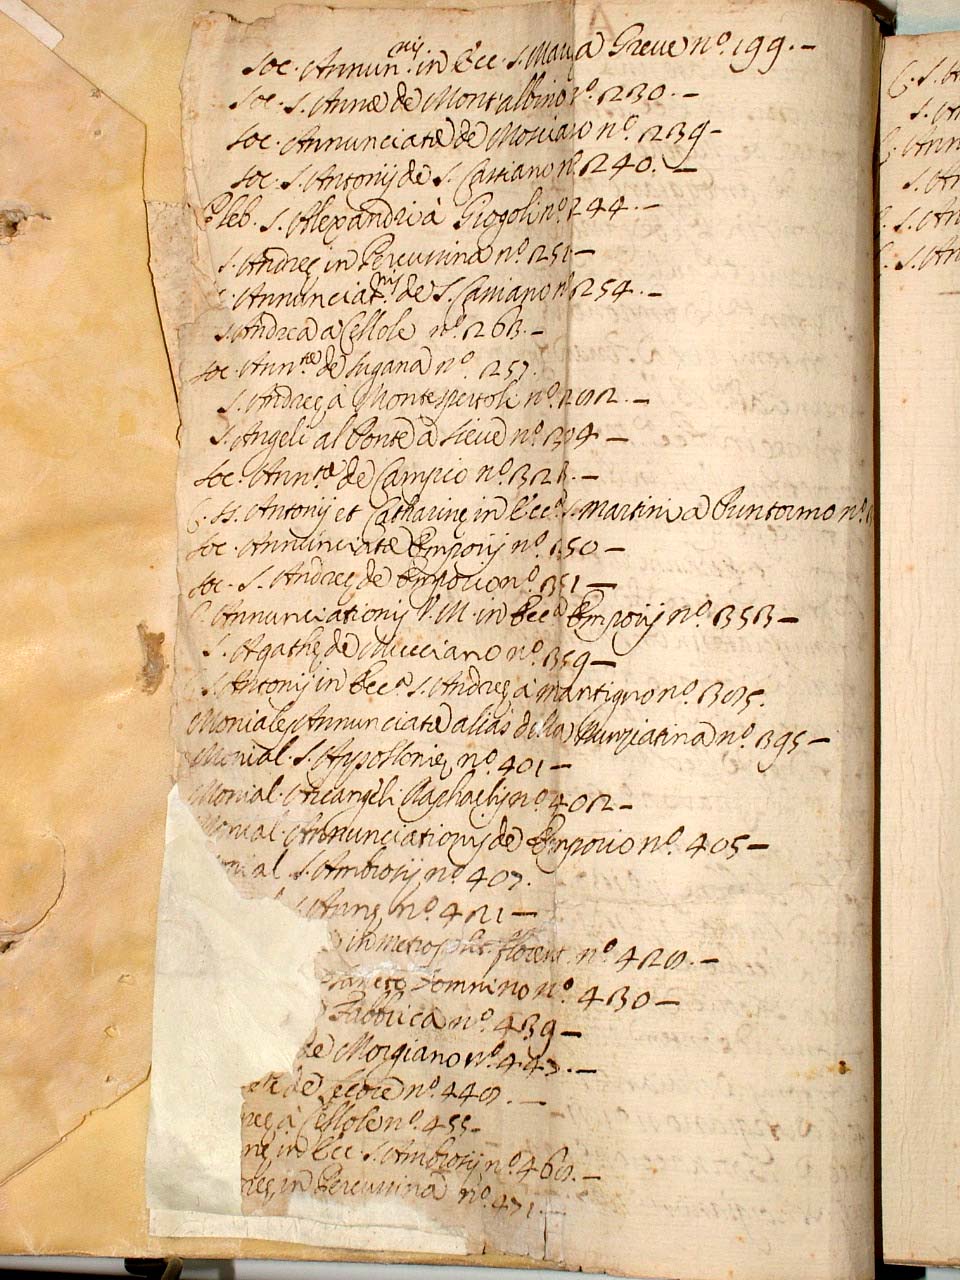 A
Soc. Annun.nis in Ecc. S. Maria a Greve nº. 199. —
Soc. S. Annæ de Mont'albino nº. 230. —
Soc. Annunciatæ de nº. 239 —
Soc. S. Antonij de S. Cassiano nº. 240. —
Pleb. S. Alexandri à Giogoli nº. 244. —
S. Andreę in Percussina nº. 251 —
Annunciat.nis de S. Cassiano nº. 254. —
S. Andrea a Cellole nº. 263. —
Soc. Ann.tæ de Lugana nº. 257.
S. Andreę à Montespertoli nº. 292. —
S. Angeli al Ponte a Sieve nº. —
Soc. Ann.tæ de Campio nº. —
C. SS. Antonij et Catharinę in Ecc.ª S. Martini a Puntormo nº.
Soc. Annunciatæ Emporij nº. —
Soc. S. Andreę de Emporio nº. 351 —
C. Annunciationis V. M. in Ecc.ª Emporij nº. 353 —
S. Agathę de Mucciano nº. 359 —
S. Antonij in Ecc.ª S. Andreę a martigno nº.
Moniales Annunciatæ alias della Nunziatina nº. 395 —
Monial. S. Appollonię nº. 401 —
Monial. Arcangeli Raphaelis nº. 402 —
Monial. Annunciationis de Emporio nº. 405 —
Monial S. Ambrosij nº. 407.
S. Annę nº. 421 —
in Metrop. florent. nº. 428. —
Sancto Donnino nº. 430 —
Fabbrica nº. 439 —
de Morgiano nº. 447. —
de Lecore nº. 448. —
reę à Cellole nº. 455 —
nę in Ecc. S. Ambrosij nº. 468. —
reę in Percussina nº. 471. —
C. S. A
S. A
Ann
S. A
S. An
S. An